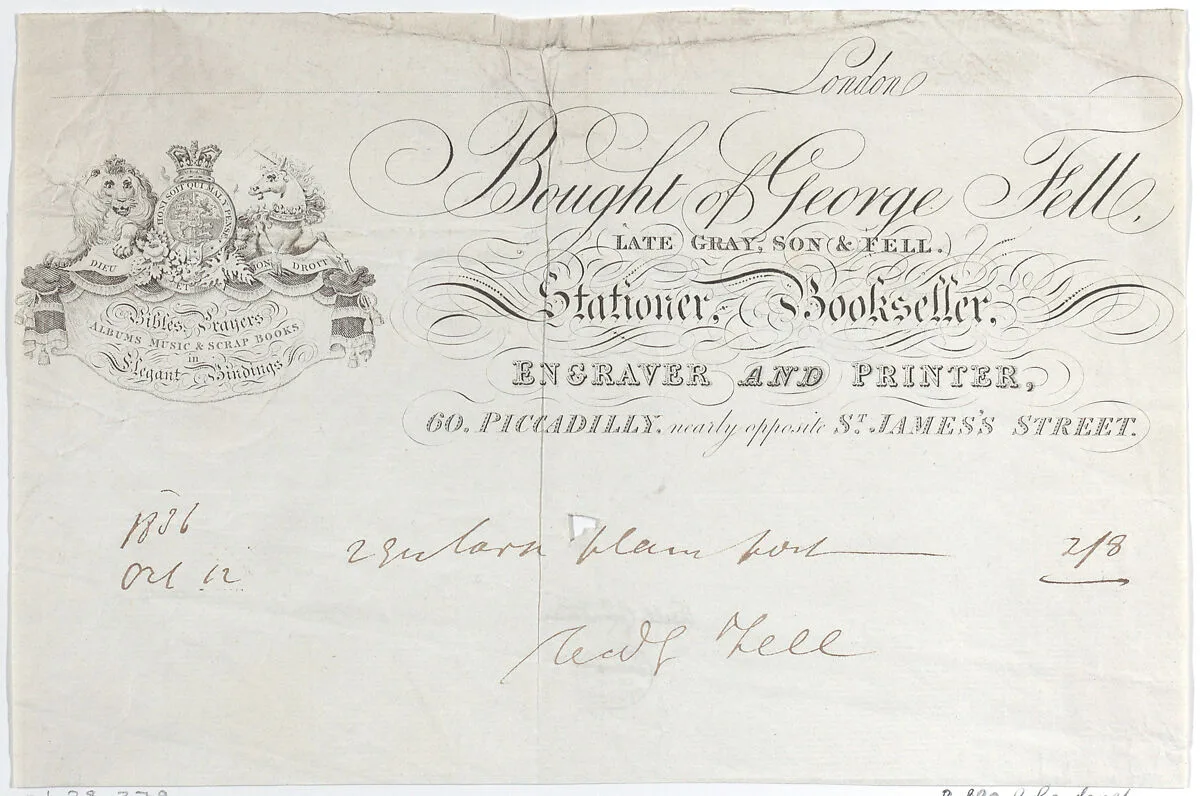 London
Bought of George Fell,
(LATE GRAY, SON & FELL.)
Stationer, Bookseller,
ENGRAVER AND PRINTER,
60, PICCADILLY, nearly opposite ST. JAMES'S STREET.
HONI SOIT QUI MAL Y PENSE
DIEU ET MON DROIT
Bibles, Prayers
ALBUMS MUSIC & SCRAP BOOKS
in
Elegant Bindings
1836
Oct 12
2 plain 2/8
Fell